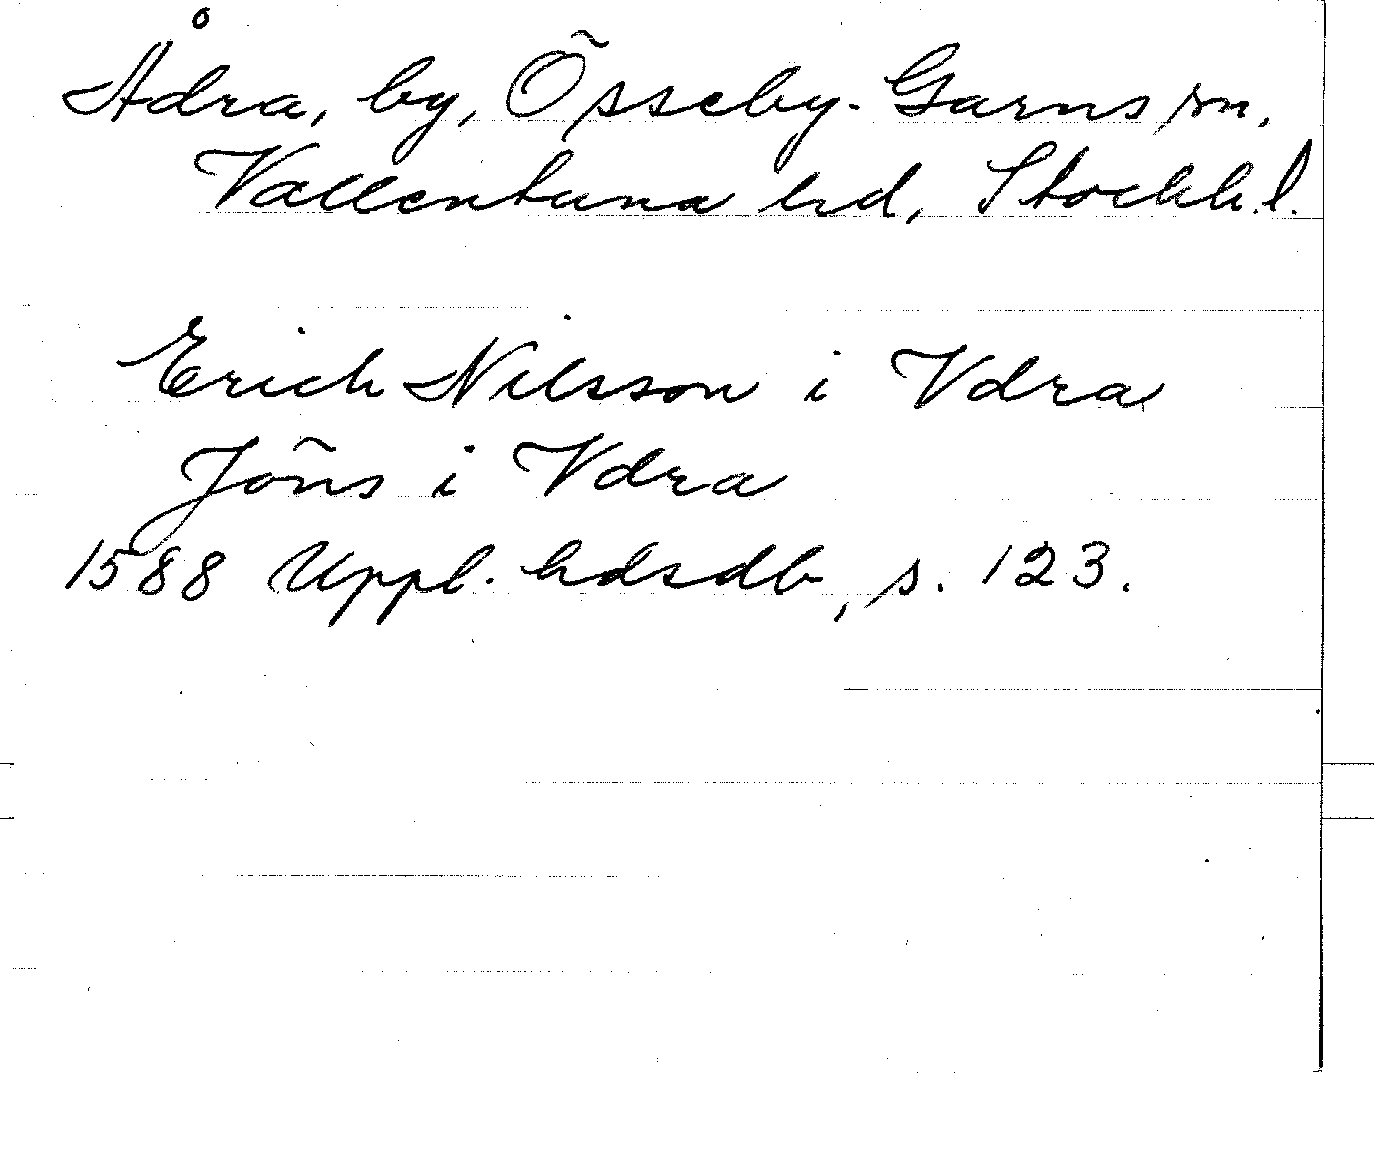 Ådra, by, Össeby-Garns sn,
Vallentuna hd, Stockh.l.
Erich Nilsson i Vdra
Jöns i Vdra
1588 Uppl. hdsdb, s. 123.